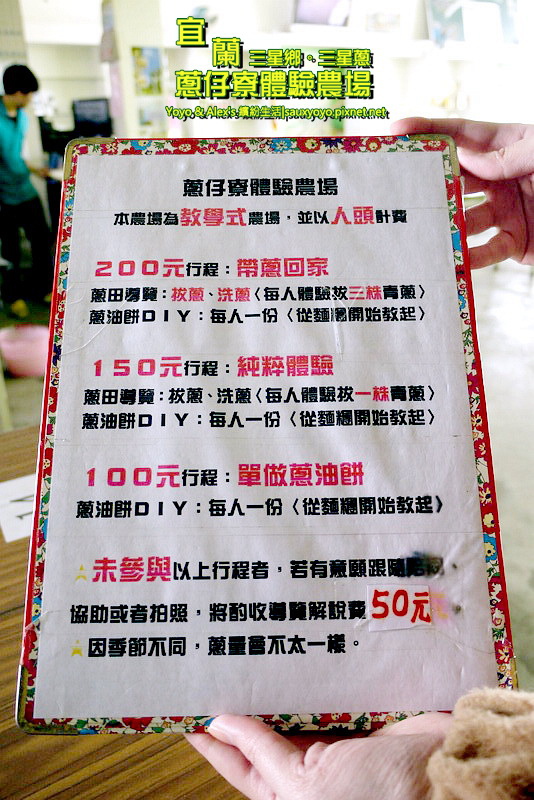 宜蘭 三星鄉。三星蔥
蔥仔寮體驗農場
Yoyo & Alex's 繽紛生活|sauxyoyo.pixnet.net
蔥仔寮體驗農場
本農場為教學式農場，並以人頭計費
200元行程：帶蔥回家
蔥田導覽：拔蔥、洗蔥〈每人體驗拔三株青蔥〉
蔥油餅DIY：每人一份〈從麵糰開始教起〉
150元行程：純粹體驗
蔥田導覽：拔蔥、洗蔥〈每人體驗拔一株青蔥〉
蔥油餅DIY：每人一份〈從麵糰開始教起〉
100元行程：單做蔥油餅
蔥油餅DIY：每人一份〈從麵糰開始教起〉
★未參與以上行程者，若有意願跟隨
協助或者拍照，將酌收導覽解說費50元
★因季節不同，蔥量會不太一樣。